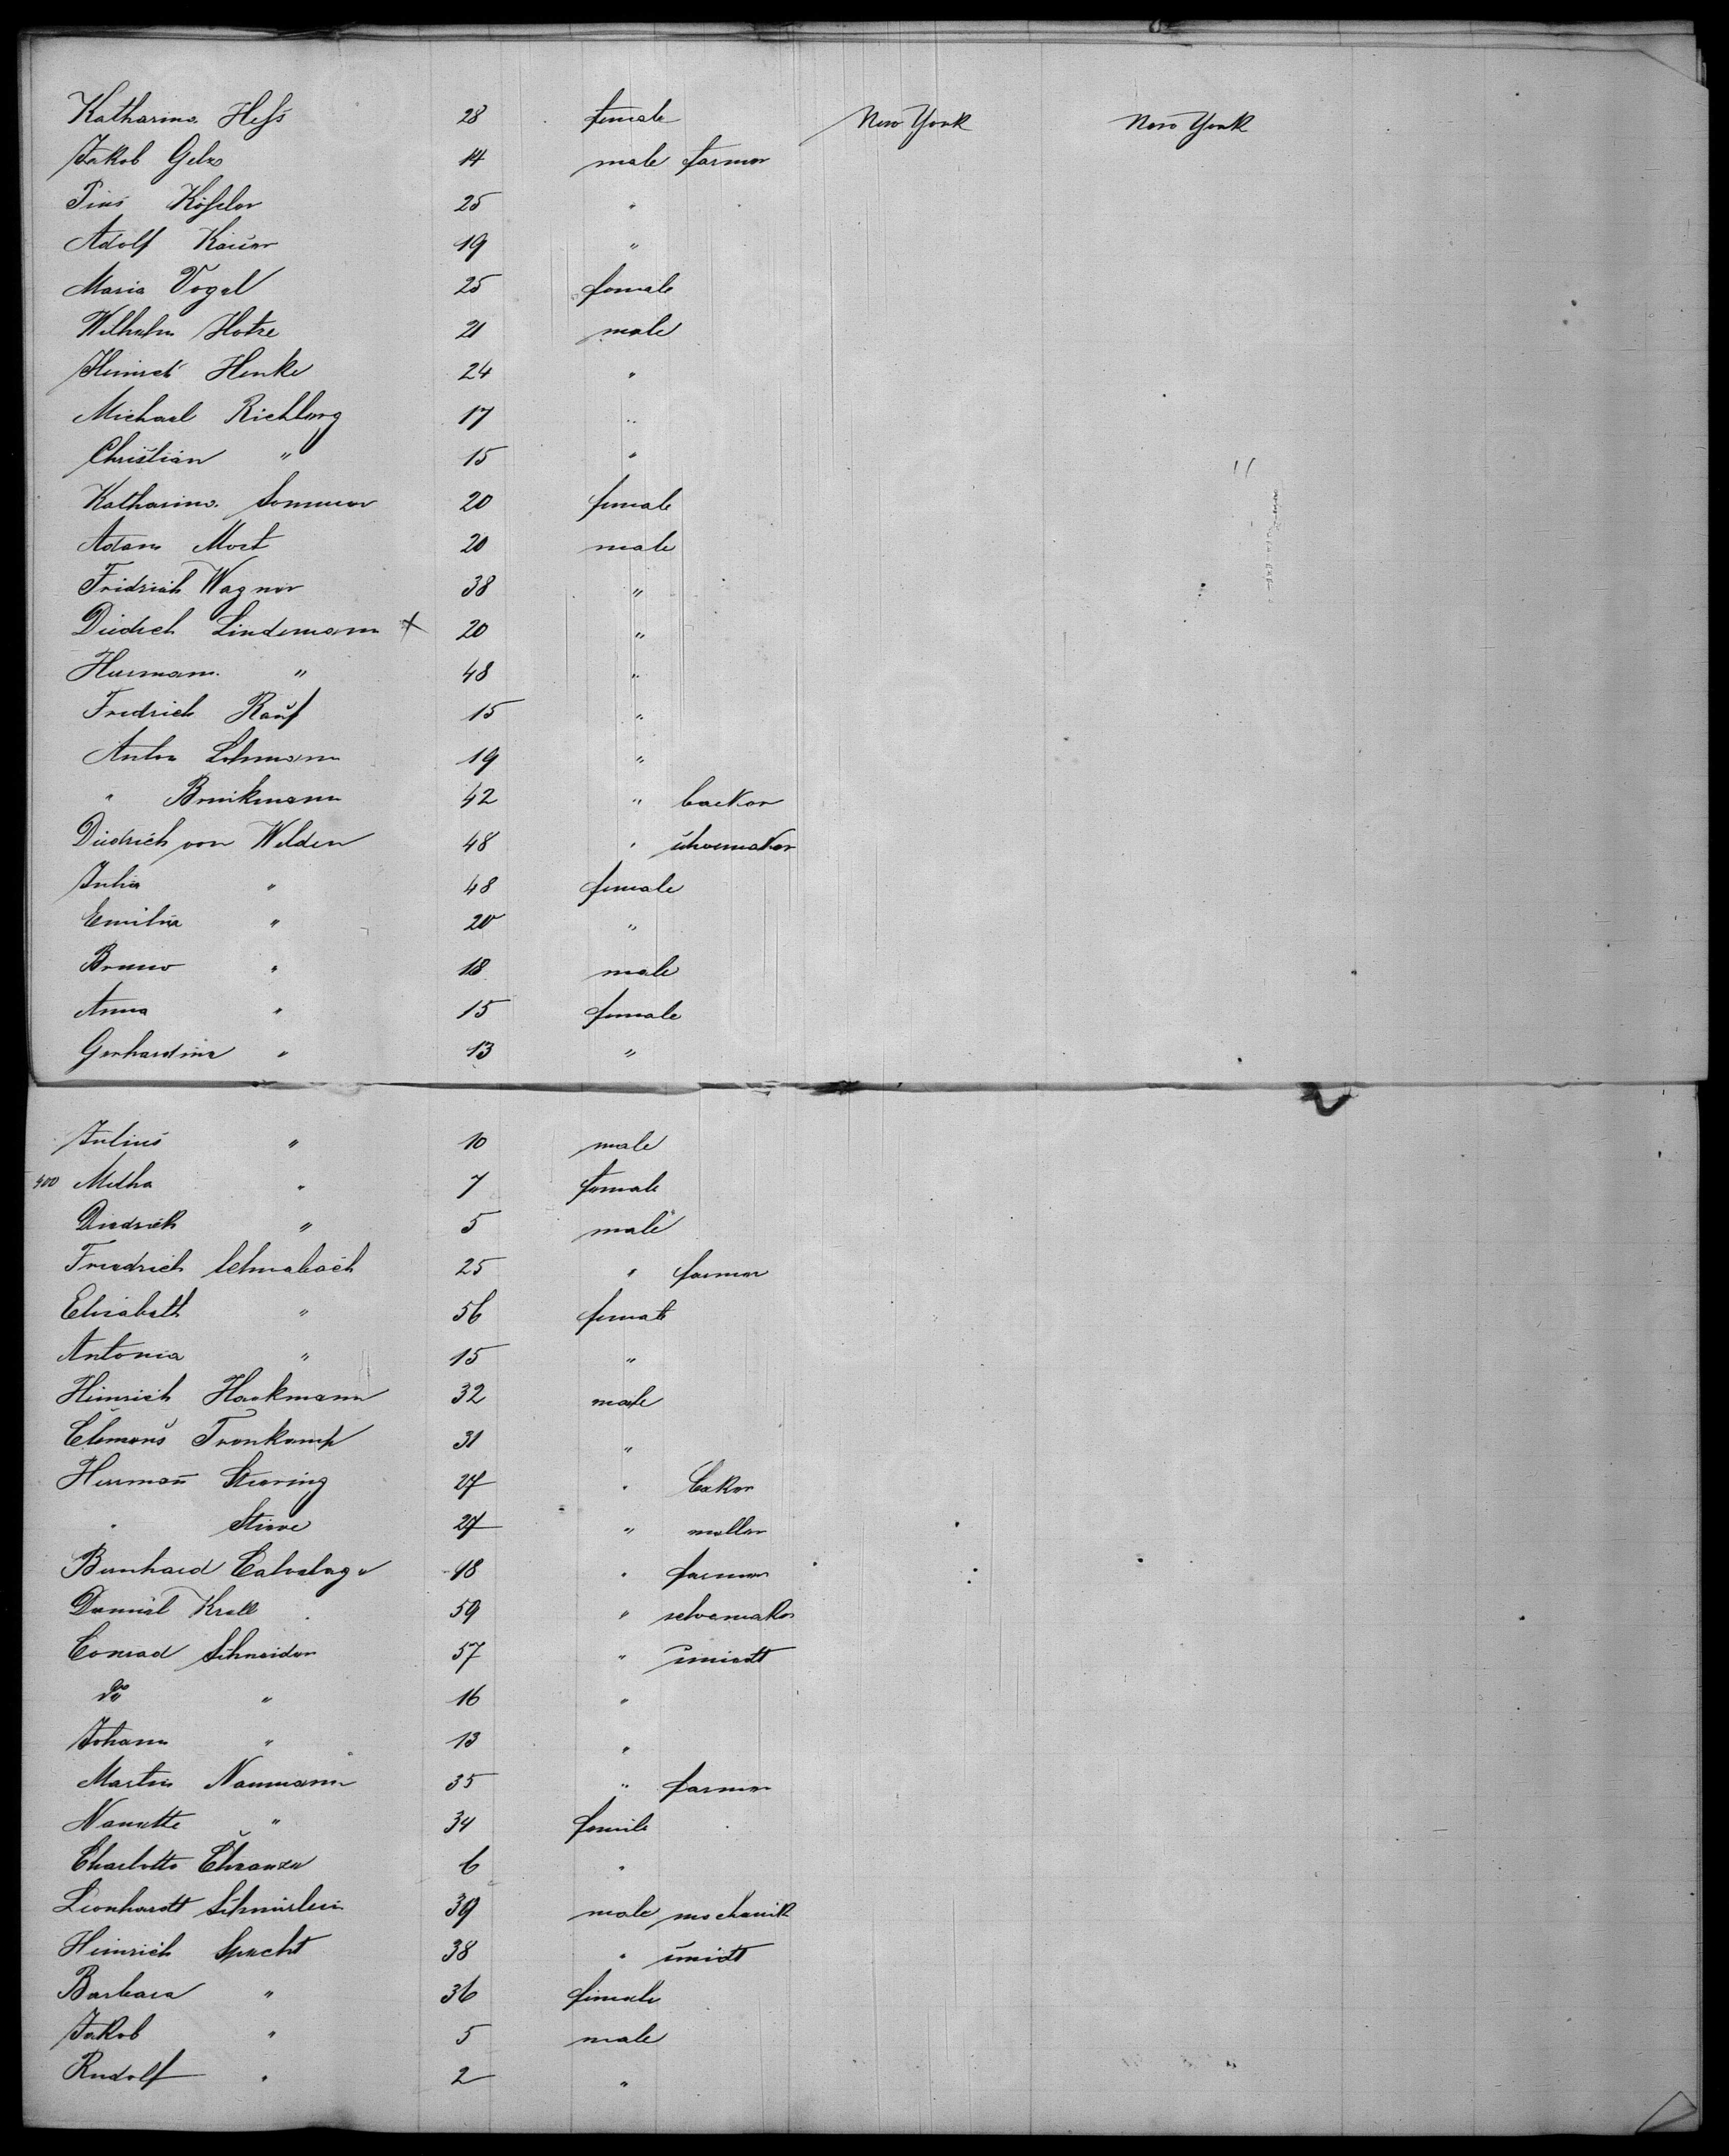 Katharina Hess 28 female New York New York
Jakob Gelz 14 male farmer
Pius Kössler 25 "
Adolf Kaiser 19 "
Maria Vogel 25 female
Wilhelm Hotze 21 male
Heinrich Henke 24 "
Michael Richberg 17 "
Christian " 15 "
Katharina Sommer 20 female
Adam Mort 20 male
Fridrich Wagner 38 "
Diedrich Lindemann x 20 "
Hermann " 48 "
Fredrich Rauf 15 "
Anton Lehmann 19 "
" Brinkmann 42 " backer
Diedrich von Welden 48 " shoemaker
Julia " 48 female
Emilia " 20 "
Bruno " 18 male
Anna " 15 female
Gerhardine " 13 "
Julius " 10 male
400 Metha " 7 female
Diedrich " 5 male
Friedrich Schwabach 25 " farmer
Elisabeth " 56 female
Antonia " 15 "
Heinrich Hackmann 32 male
Clemens Trenkamp 31 "
Hermann Stering 27 " baker
" Stieve 27 " muller
Bernhard Calvelage 48 " farmer
Daniel Krell 59 " schoemaker
Conrad Schneider 57 " smiedt
do " 16 "
Johann " 13 "
Martin Naumann 35 " farmer
Nanette " 34 female
Charlotte 6 "
Leonhardt 39 male mechanik
Heinrich Specht 38 " smidt
Barbara " 36 female
Jakob " 5 male
Rudolf " 2 "